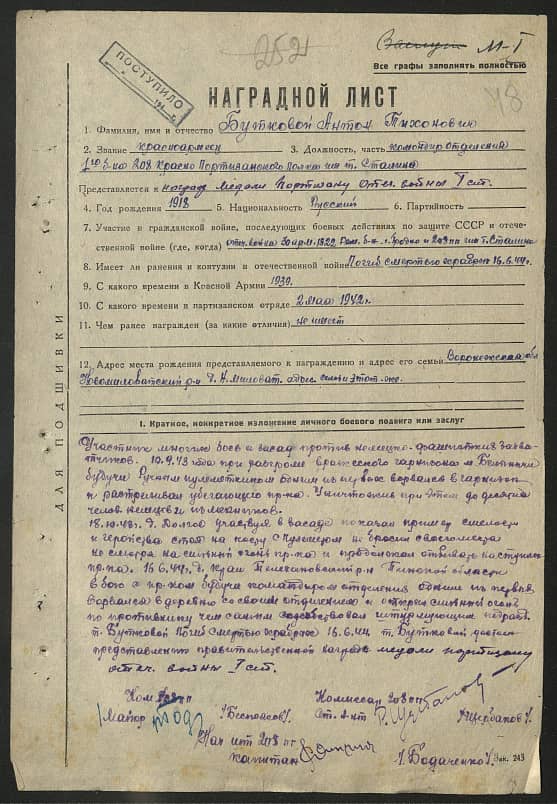 252
Заслуж М-I
Все графы заполнять полностью
ПОСТУПИЛО
48
НАГРАДНОЙ ЛИСТ
1. Фамилия, имя и отчество Бутковой Антон Тихонович
2. Звание красноармеец 3. Должность, часть командир отделения
1го б-на 208 Красно Партизанского Полка им т. Сталина
Представляется к награде медали Партизану Отеч. войны I ст.
4. Год рождения 1918 5. Национальность Русский 6. Партийность
7. Участие в гражданской войне, последующих боевых действиях по защите СССР и отече-
ственной войне (где, когда) отеч. война г. Гродно и 208 пп им т. Сталина
8. Имеет ли ранения и контузии в отечественной войне Погиб смертью храбрых 16.6.44г.
9. С какого времени в Красной Армии 1939.
10. С какого времени в партизанском отряде 2 мая 1942г.
11. Чем ранее награжден (за какие отличия) не имеет
12. Адрес места рождения представляемого к награждению и адрес его семьи Воронежская обл
Новомиловатский р-н д. Н. Миловат. адрес семьи этот-же.
ДЛЯ ПОДШИВКИ
I. Краткое, конкретное изложение личного боевого подвига или заслуг
Участник многих боев и засад против немецко-фашистких захва-
тчиков. 10.9.43 года при разгроме вражеского гарнизона м.
будучи Ручным пулеметчиком одним из первых ворвался в гарнизон
и расстреливая убегающего пр-ка. Уничтожив при этом до десятка
челов. немцев из
18.10.43г. д. Долгое участвуя в засаде показал пример смелости
и геройства стал на
не смотря на сильный огонь пр-ка и продолжал отбивать наступление
пр-ка. 16.6.44г. д. Край Телехановский р-н Пинской области
в бою с пр-ком будучи командиром отделения одним из первых
ворвался в деревню со своим отделением и открыл сильный огонь
по противнику чем самым содействовал штурмующим
т. Бутковой Погиб смертью храбрых 16.6.44 т. Бутковой достоин
представления правительственной награде медали партизану
отеч. войны I ст.
Ком. 208 пп Комиссар 208 пп
Майор /Беспоясов/. Ст. л-нт /Щербаков/.
Нач шт 208 пп
капитан /Бодаченко/. Зак. 243